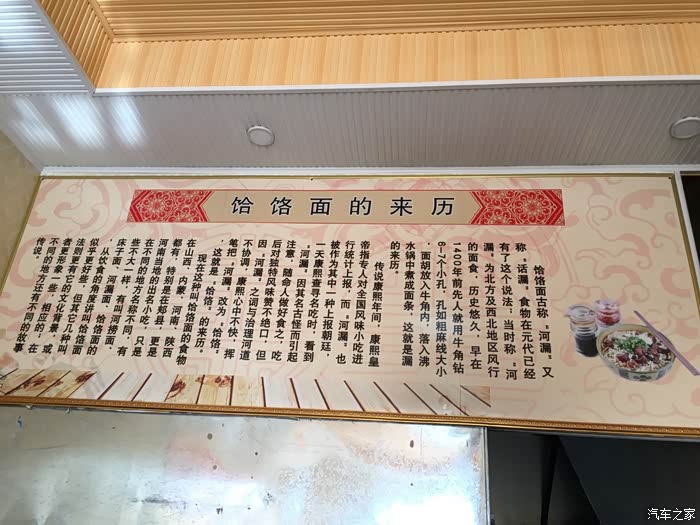 饸饹面的来历
饸饹面古称“河漏”，又
称“话漏”，食物在元代已经
有了这个说法；当时称“河
漏”为北方及西北地区风行
的面食，历史悠久，早在
1400年前先人就用牛角钻
6-7个小孔，孔如粗麻线大小
，面胡放入牛角内，落入沸
水锅中煮成面条，这就是漏
的来历。
传说康熙年间，康熙皇
帝指专人对全国风味小吃进
行统计上报，而“河漏”也
被作为其中一种上报朝廷，
一天康熙查寻名吃时，看到
“河漏”因其名古怪而引起
注意，随命人做好食之，吃
后对独特风味赞不绝口，但
因“河漏”之词与治理河道
不协调，康熙心中不快，挥
笔把“河漏”改为“饸饹”
，这就是“饸饹”的来历。
现在这种叫饸饹面的食物
在山西、内蒙、河南、陕西
都有，特别是在郏县，更是
河南当地的出名小吃，只是
在不同的地方名称不同，有
些不大一样，有叫河捞面，
床子面，河漏面，饸饹面的
，从饮食的角度讲叫饸饹面
似乎更好些，但其它几种叫
法则更有它的文化背景，或
者更形象一些，相应的，在
不同的地方还有不同的故事
传说。
汽车之家